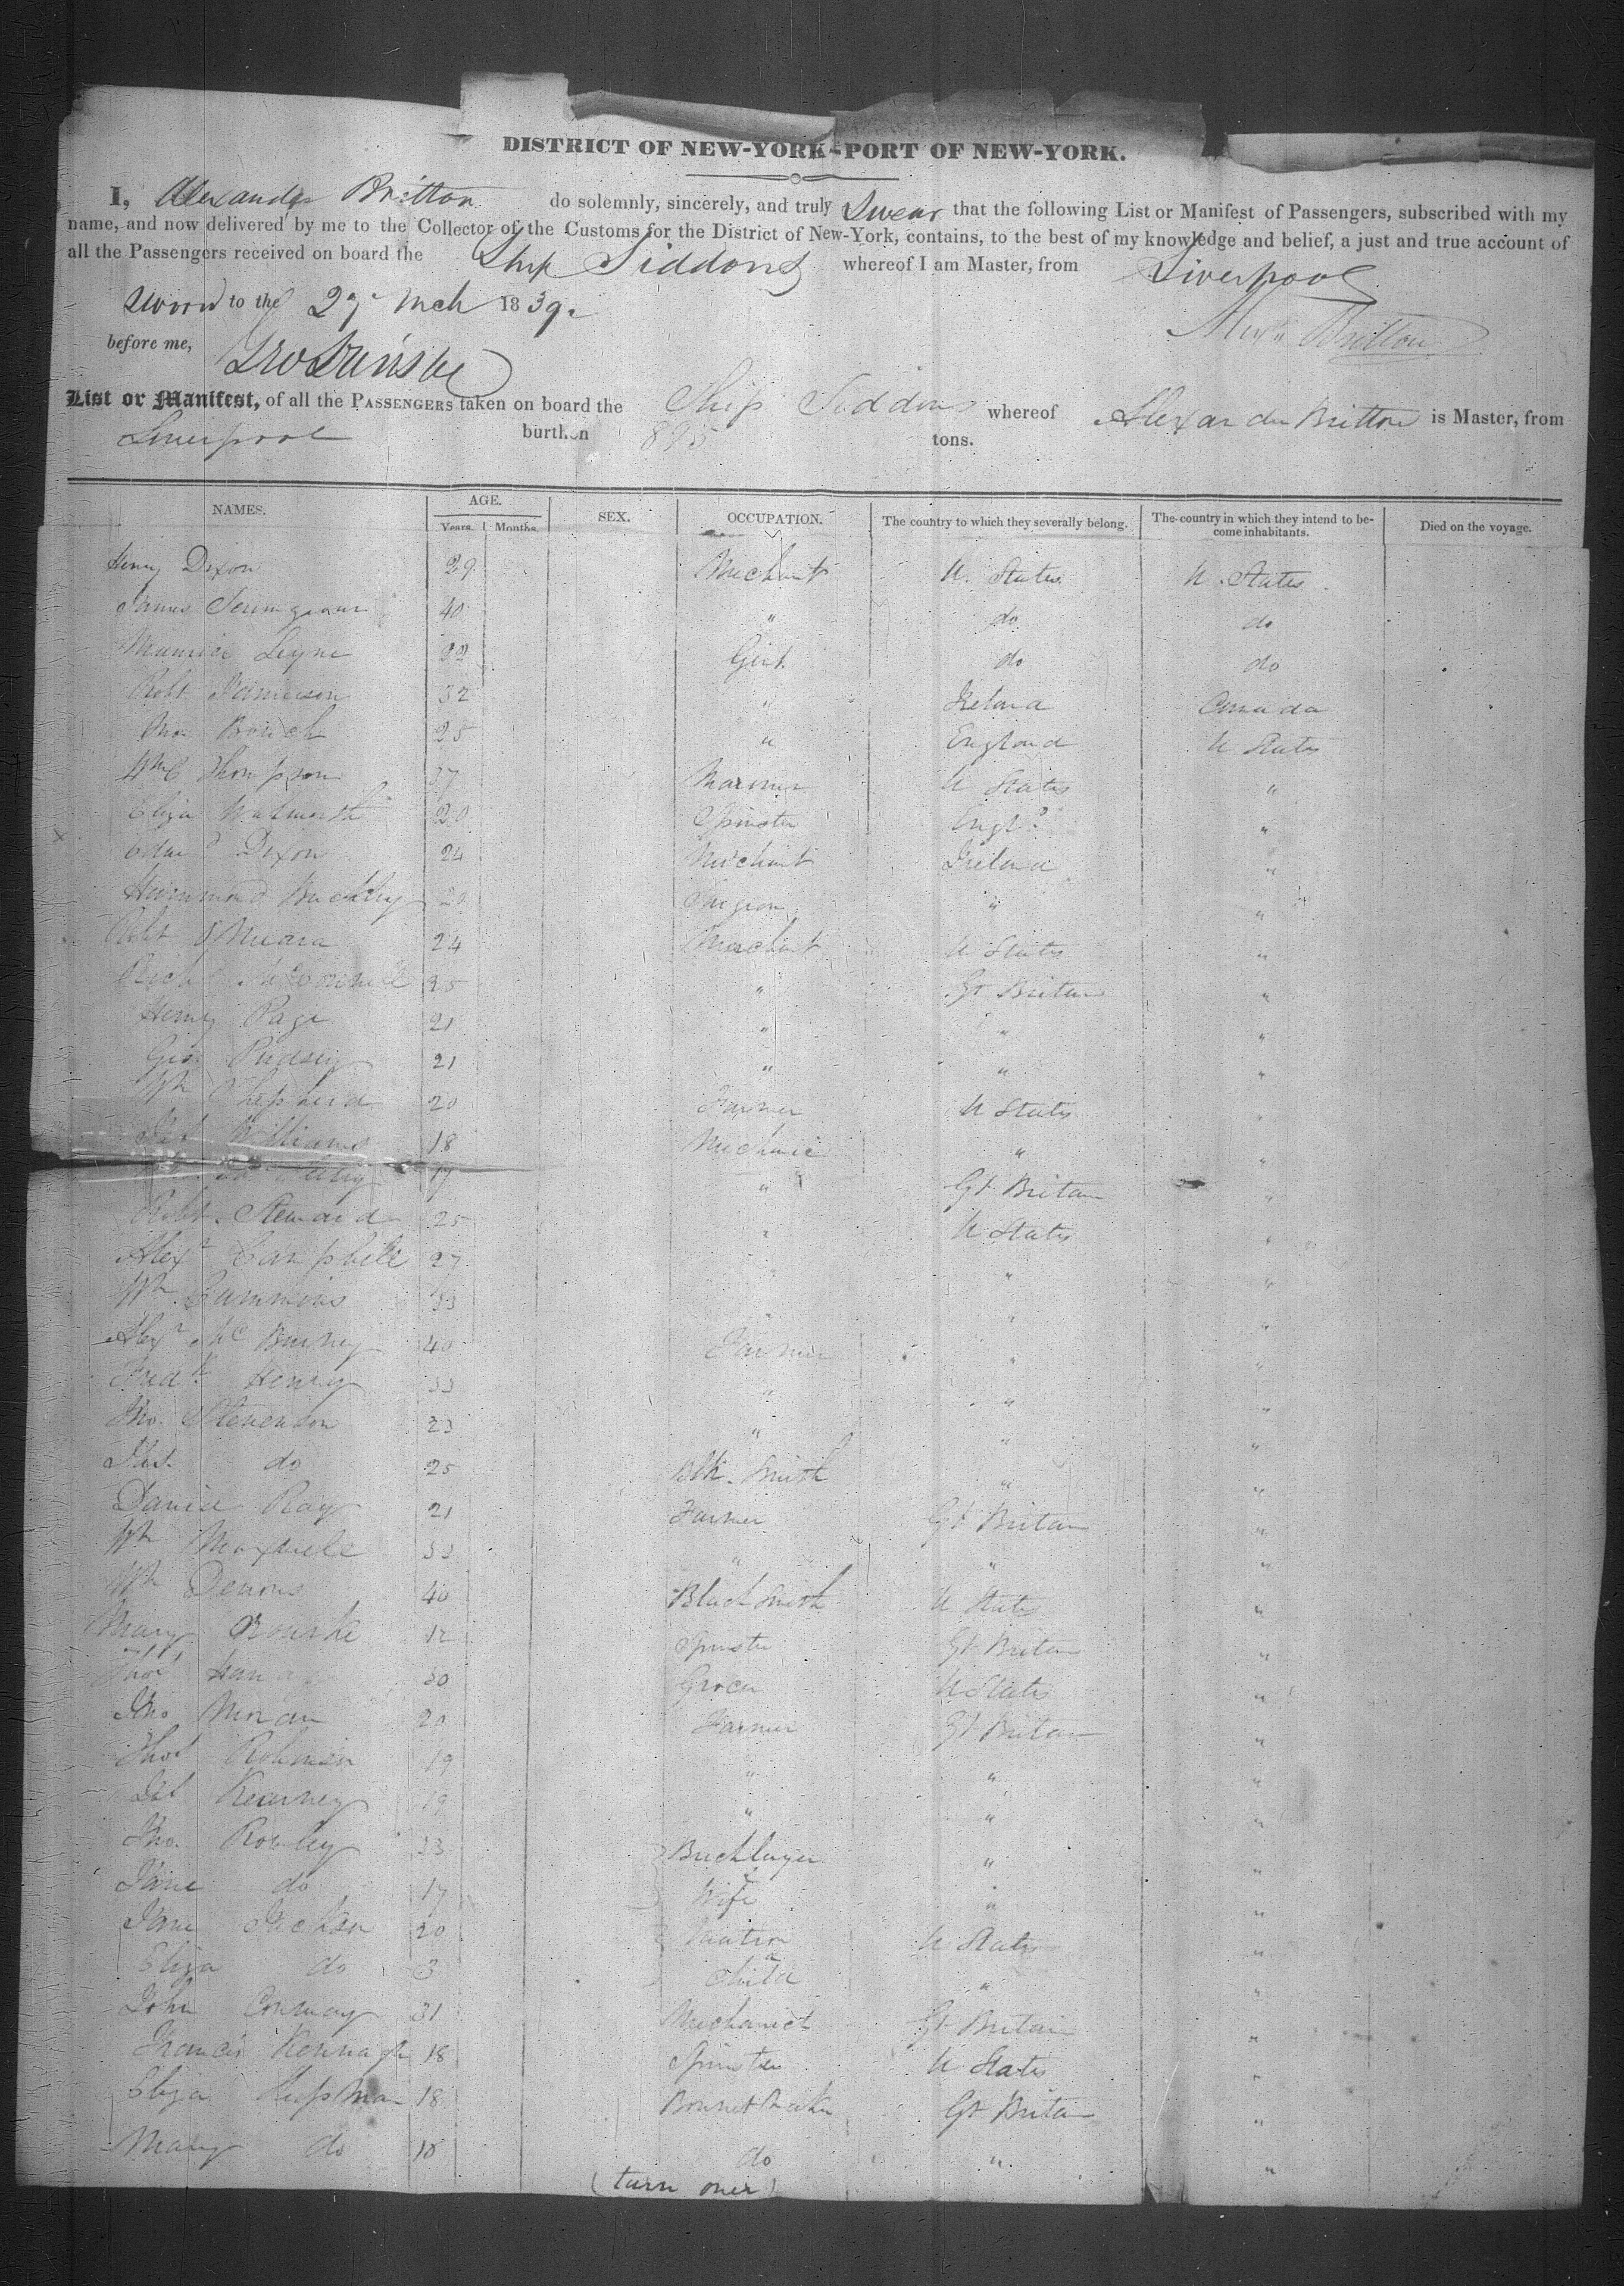 DISTRICT OF NEW-YORK-PORT OF NEW-YORK.
I, Alexander Britton do solemnly, sincerely, and truly Swear that the following List or Manifest of Passengers, subscribed with my
name, and now delivered by me to the Collector of the Customs for the District of New-York, contains, to the best of my knowledge and belief, a just and true account of
all the Passengers received on board the Ship Siddons whereof I am Master, from Liverpool
Sworn to the 27 Mch 1839.
Alexr Britton
before me,
List or Manifest, of all the PASSENGERS taken on board the Ship Siddons whereof Alexander Britton is Master, from
Liverpool burthen 895 tons.
NAMES. AGE. SEX. OCCUPATION. The country to which they severally belong. The country in which they intend to be- Died on the voyage.
Years. Months. come inhabitants.
Henry Dixon 29 Merchant U. States U. States
James 40 " do do
Maurice Leyne Gent. do do
Robt Jamieson 32 " Ireland Canada
25 " England U States
Wm C Thompson 37 Mariner U States "
Eliza 20 Spinster Engld "
Edwd Dixon 24 Merchant Ireland "
Hammond Buckley Surgeon " "
Robt OMeara 24 Merchant U States "
Richd McConnell 25 " Gt Britan "
Henry Page 21 " " "
Geo. Pudsey 21 " " "
Wm Shepherd 20 Farmer U States "
Williams 18 Mechanic " "
17 " Gt Britan "
Robt. Steward 25 " U States "
Alexr Campbell 27 " " "
Wm Cummins 33 " " "
Alexr McBurney 40 Farmer " "
Fredk Henry 33 " " "
Jno. Stevenson 23 " " "
Jas. do 25 Blk. Smith " "
Daniel Ray 21 Farmer Gt Britan "
Wm Maxwell 33 " " "
Wm Dennis 40 Black Smith U States "
Mary Rourke 12 Spinster Gt Britan "
Thos 30 Grocer U States "
Jno Moran 20 Farmer Gt Britan "
Thos Robinson 19 " " "
Kearney 19 " " "
Jno. Rowley 23 Bricklayer " "
Jane do 17 Wife " "
Jane Jackson 20 Matron U States "
Eliza do 3 Child " "
John Conway 31 Mechanick Gt Britain "
Francis Kennagh 18 Spinster U States "
Eliza 18 Bonnet Maker Gt Britan "
Mary do do " "
(turn over)